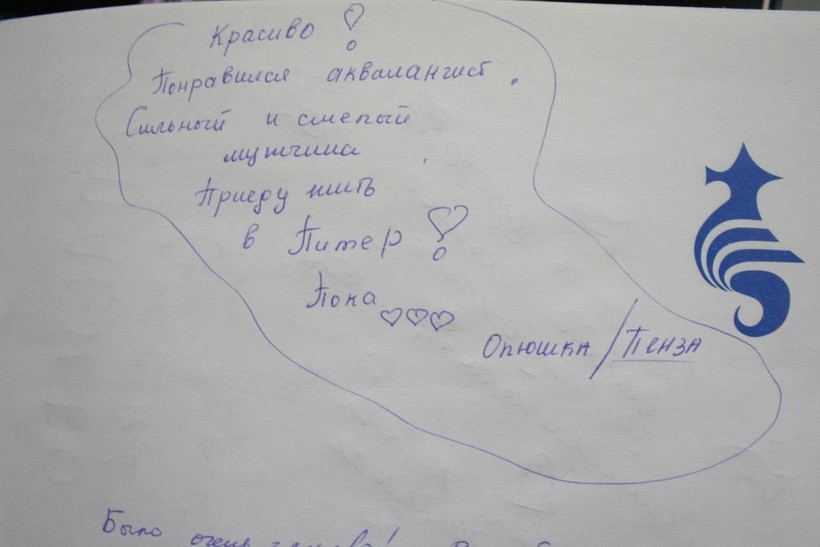 Красиво!
Понравился аквалангист.
Сильный и смелый
мужчина
Приеду жить
в Питер!
Пока
Олюшка / Пенза
Было очень